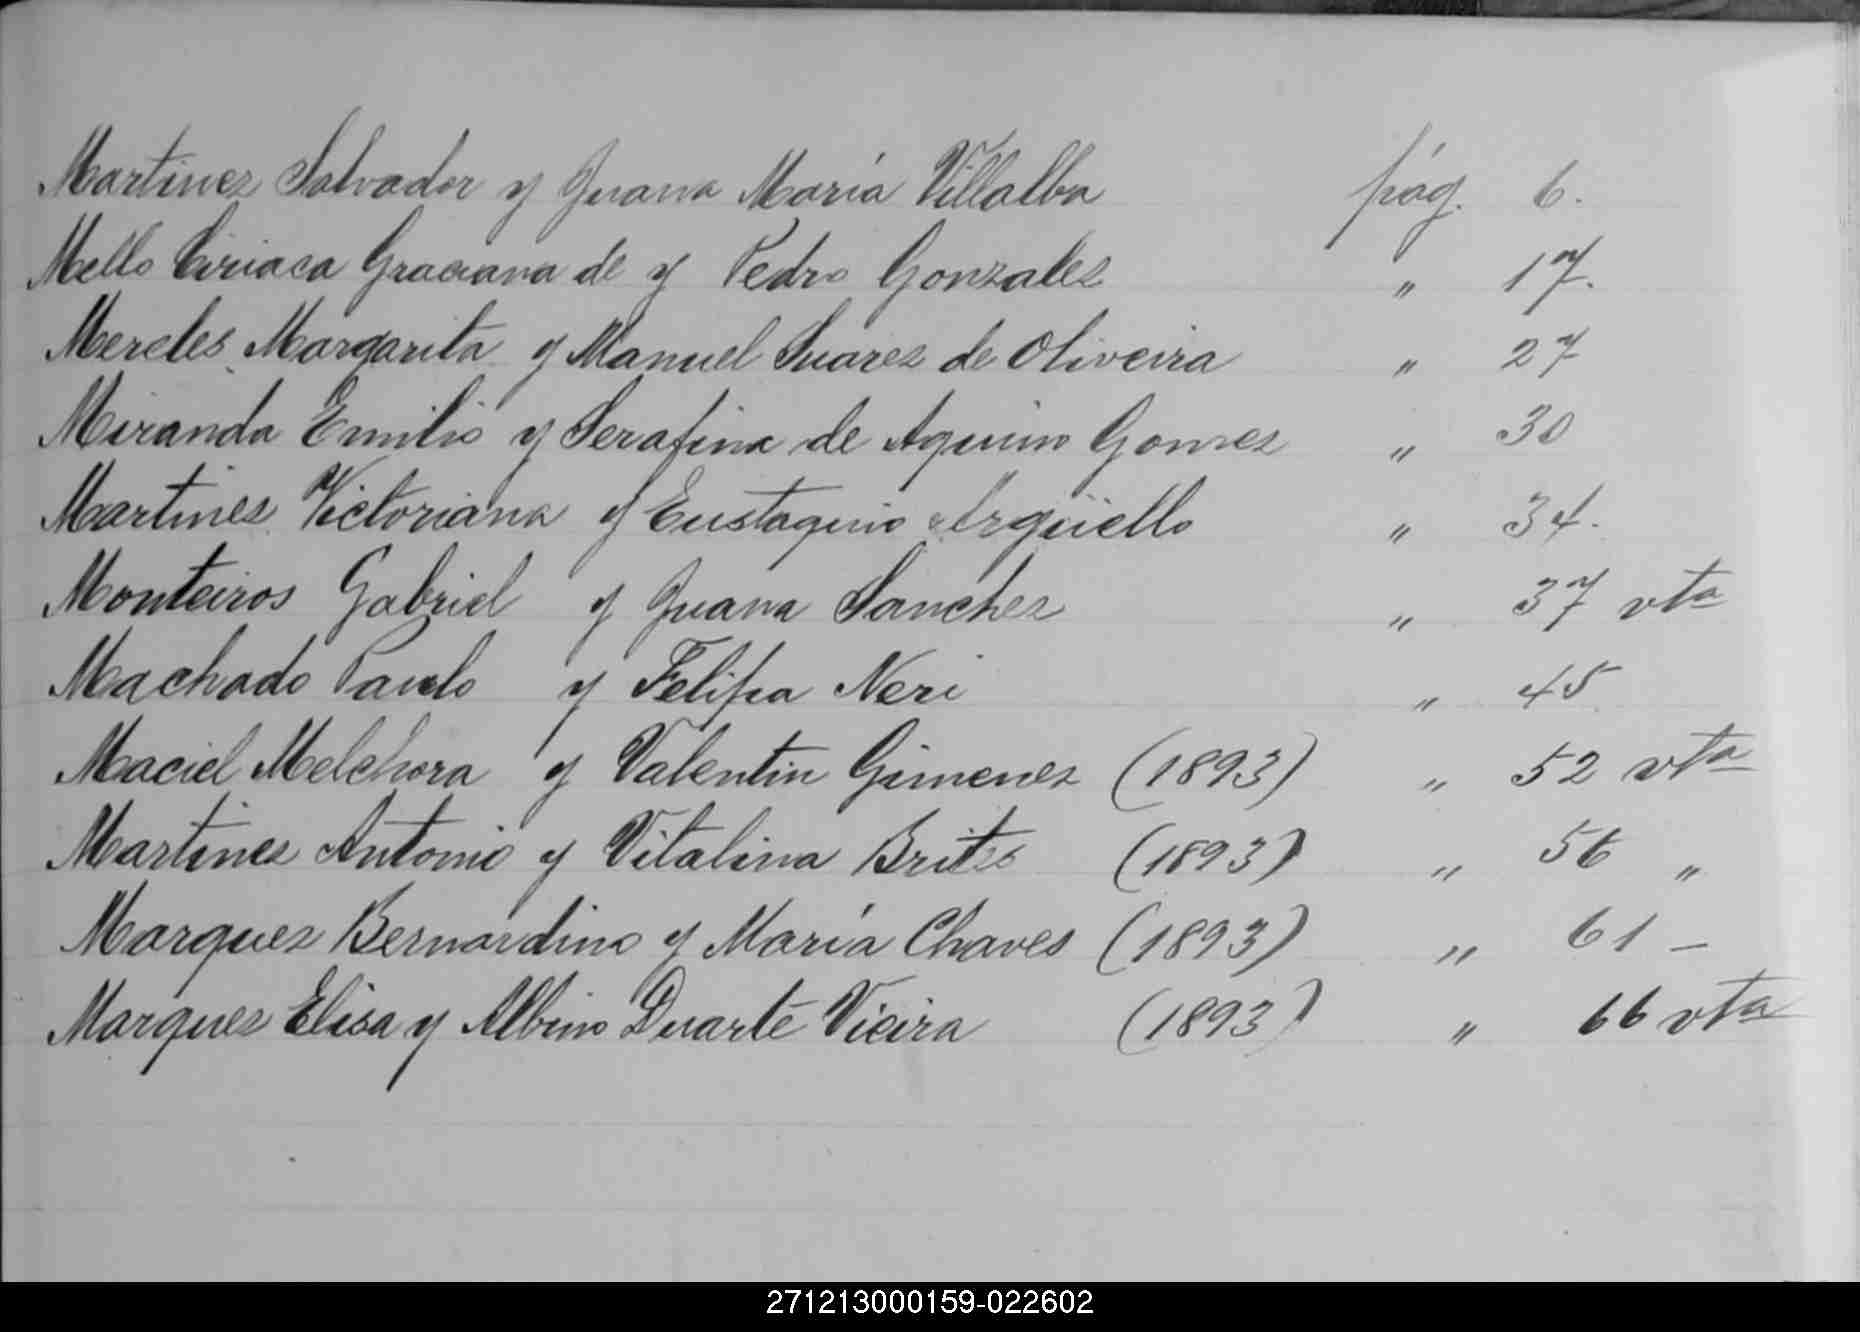 Martinez Salvador y Juana María Villalba pág. 6.
Mello Ciriaca Graciana de y Pedro Gonzalez " 17.
Mereles Margarita y Manuel Suarez de Oliveira " 27
Miranda Emilio y Serafina de Aquino Gomez " 30
Martinez Victoriana y Eustaquio Argüello " 34.
Monteiros Gabriel y Juana Sanchez " 37 vta
Machado Paulo y Felipa Neri " 45
Maciel Melchora y Valentin Gimenez (1893) " 52 vta
Martinez Antonio y Vitalina Brites (1893) " 56 "
Marquez Bernardino y María Chaves (1893) " 61 –
Marquez Elisa y Albino Duarte Vieira (1893) " 66 vta
271213000159-022602